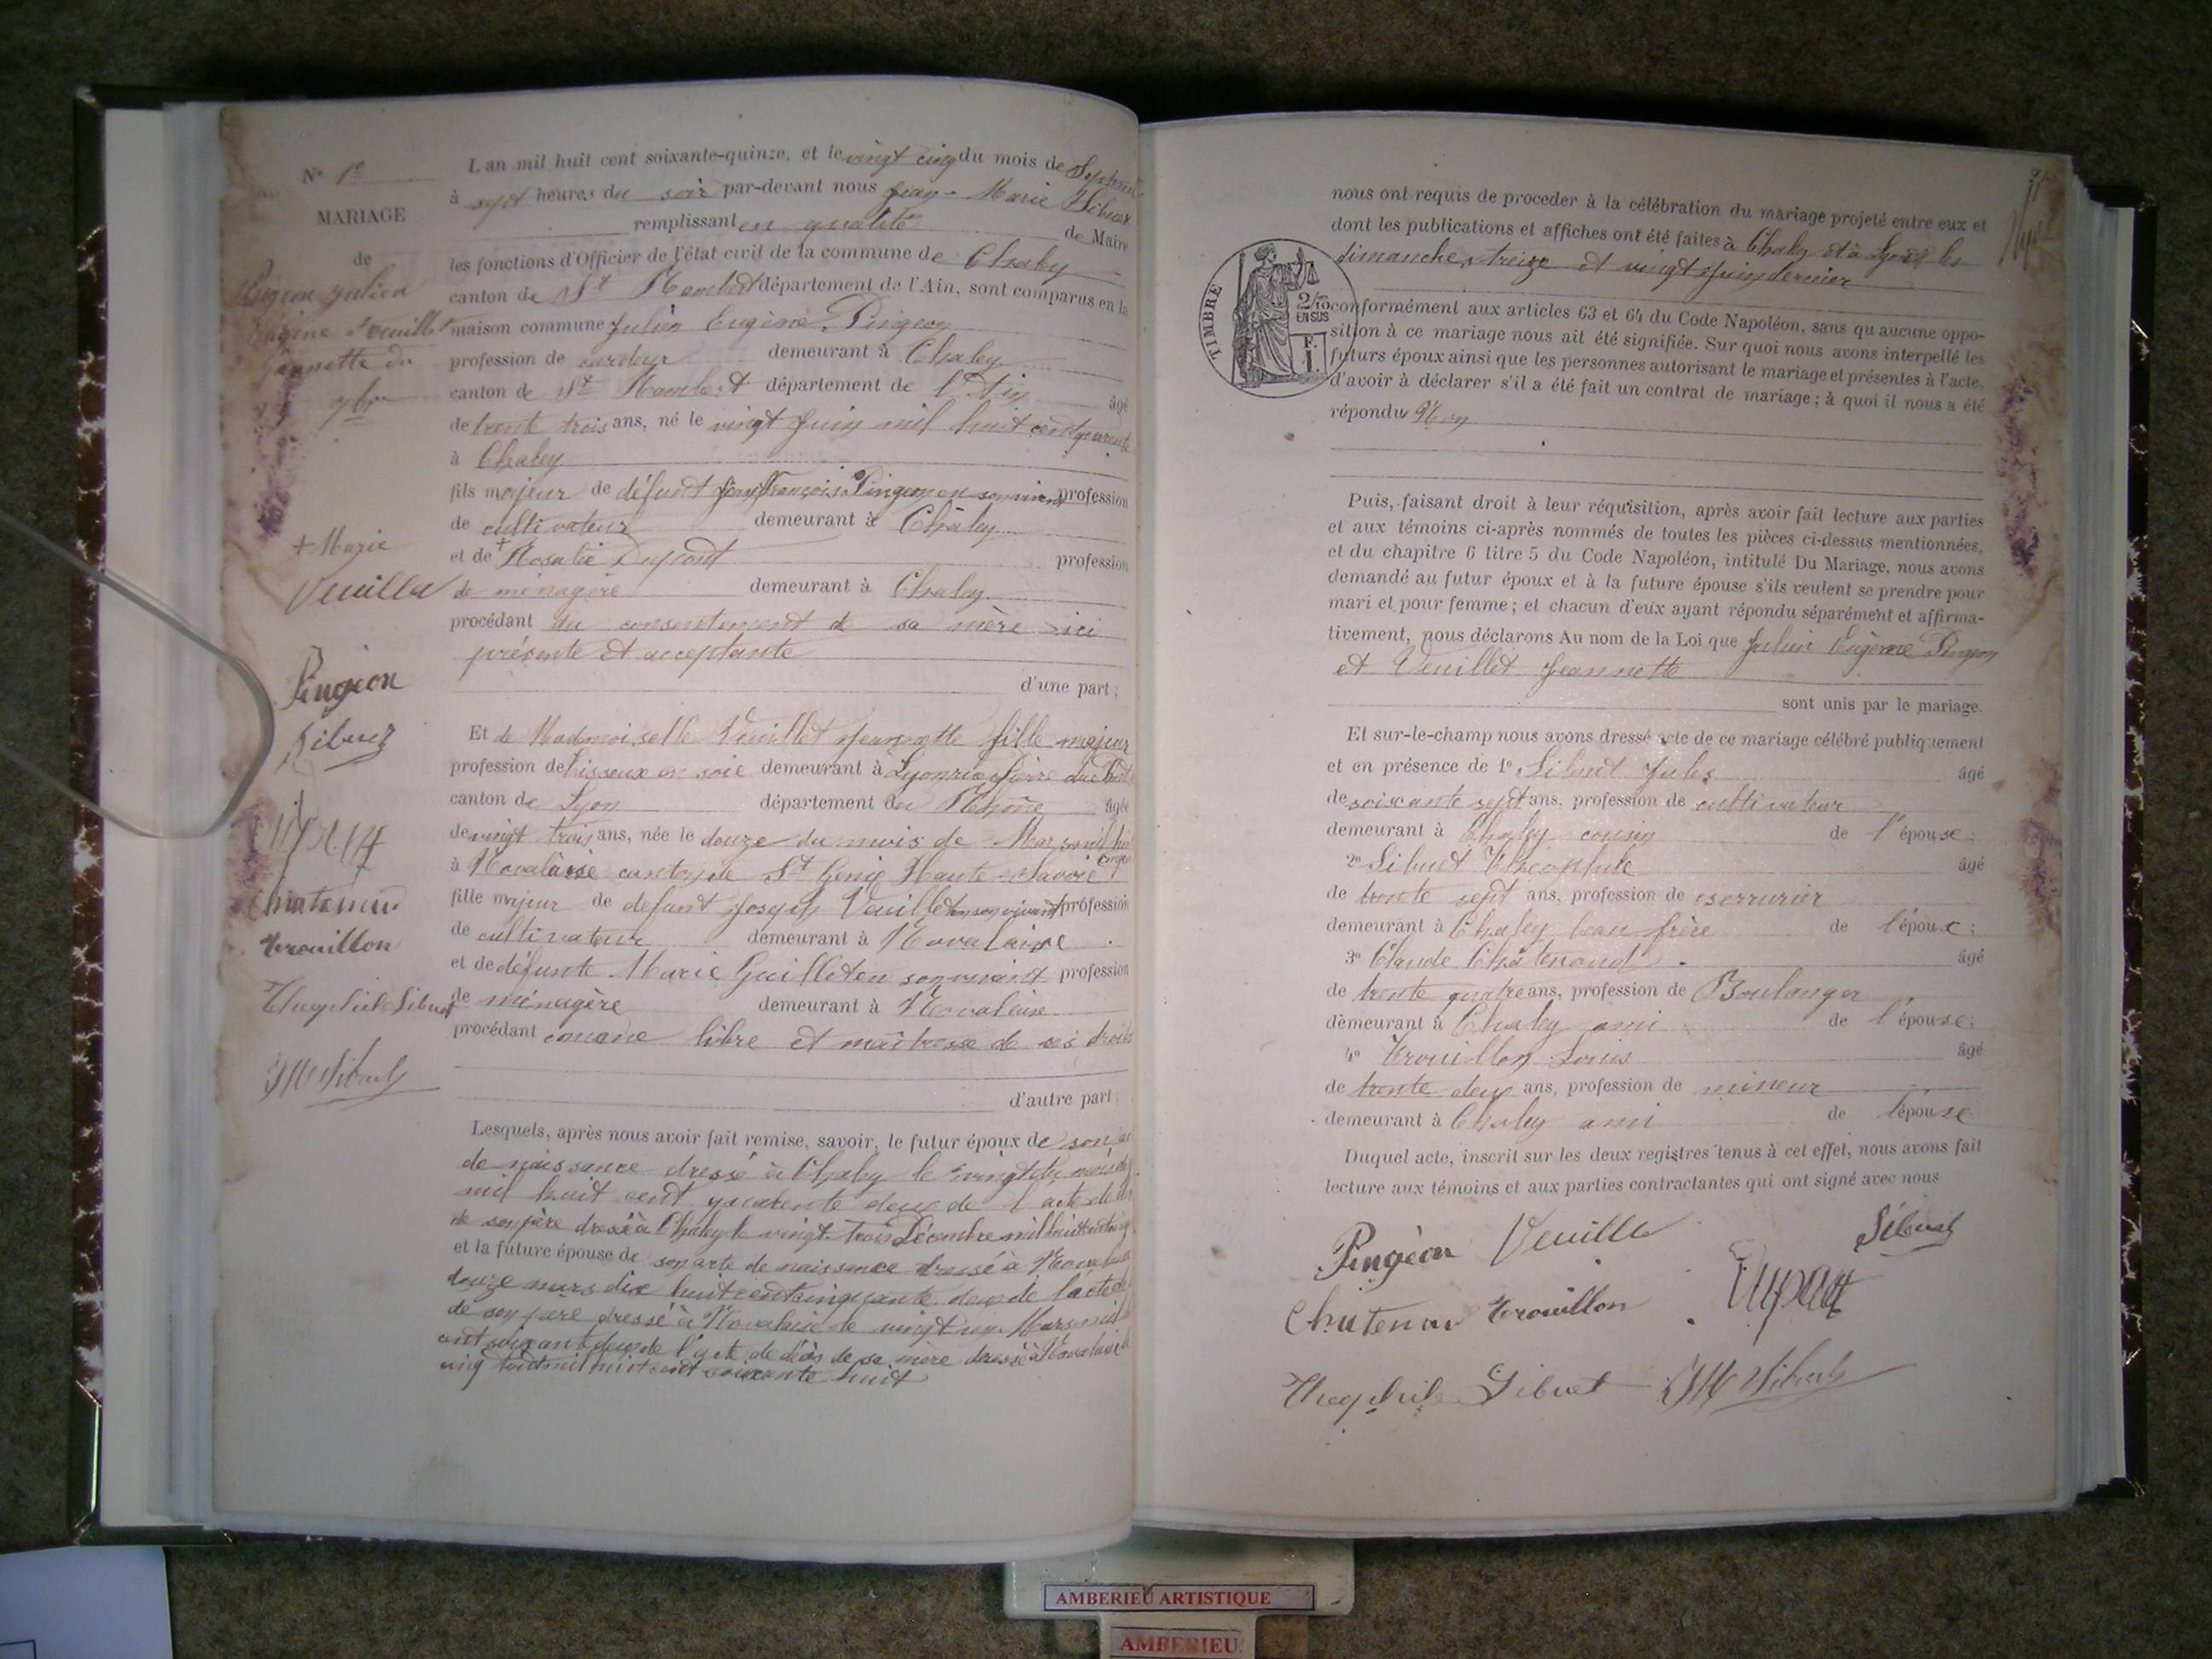 N° 1e
MARIAGE
de
Pingeon Julien
Eugène & Veuillet
Jeannette du
7bre
L'an mil huit cent soixante-quinze, et le vingt cinq du mois de Septembre
à sept heures du soir par-devant nous Jean-Marie Sibuet
remplissant en qualité de Maire
les fonctions d'Officier de l'état civil de la commune de Chaley
canton de St Rambert département de l'Ain, sont comparus en la
maison commune Julien Eugène Pingeon
profession de cardeur demeurant à Chaley
canton de St Rambert département de l'Ain âgé
de trente trois ans, né le vingt Juin mil huit cent quarante
à Chaley
fils majeur de défunt Jean François Pingeon en son vivant profession
de cultivateur demeurant à Chaley
et de + Rosalie Dupont profession
de ménagère demeurant à Chaley
procédant du consentement de sa mère ici
présente et acceptante
d'une part;
+ Marie
Veuillet
Pingeon
Sibuet
Chatenoud
Trouillon
Theophile Sibuet
JM Sibuet
Et de Madmoiselle Veuillet Jeannette fille majeur
profession de tisseux en soie demeurant à Lyon rue Pierre
canton de Lyon département du Rhône âgée
de vingt trois ans, née le douze du mois de Mars mil
à Novalaise canton de St Genie Haute-Savoie
fille majeur de defunt Joseph Veuillet en son vivant profession
de cultivateur demeurant à Novalaise
et de défunte Marie Guillet en son vivant profession
de ménagère demeurant à Novalaise
procédant comme libre et maîtresse de ses droits
d'autre part;
Lesquels, après nous avoir fait remise, savoir, le futur époux de son
de naissance dressé à Chaley le vingt du mois de
mil huit cent quarente deux de l'acte de
de son père dressé à Chaley le vingt-trois Décembre mil huit cent
et la future épouse de son acte de naissance dressé à Novalaise
douze mars dix huit cent cinquante deux de l'acte de
de son père dressé à Novalaise le vingt un Mars mil
cent soixante deux de l'acte de décès de sa mère dressé à Novalaise
cinq août mil huit cent soixante huit
nous ont requis de proceder à la célébration du mariage projeté entre eux et
dont les publications et affiches ont été faites à Chaley et à Lyon les
dimanches treize et vingt Juin dernier
TIMBRE
2/10 EN SUS
F. 1.
conformément aux articles 63 et 64 du Code Napoléon, sans qu'aucune oppo-
sition à ce mariage nous ait été signifiée. Sur quoi nous avons interpellé les
futurs époux ainsi que les personnes autorisant le mariage et présentes à l'acte,
d'avoir à déclarer s'il a été fait un contrat de mariage; à quoi il nous a été
répondu Non
Puis, faisant droit à leur réquisition, après avoir fait lecture aux parties
et aux témoins ci-après nommés de toutes les pièces ci-dessus mentionnées,
et du chapitre 6 titre 5 du Code Napoléon, intitulé Du Mariage, nous avons
demandé au futur époux et à la future épouse s'ils veulent se prendre pour
mari et pour femme; et chacun d'eux ayant répondu séparément et affirma-
tivement, nous déclarons Au nom de la Loi que Julien Eugène Pingeon
et Veuillet Jeannette
sont unis par le mariage.
Et sur-le-champ nous avons dressé acte de ce mariage célébré publiquement
et en présence de 1° Sibuet Jules âgé
de soixante sept ans, profession de cultivateur
demeurant à Chaley cousin de l'épouse;
2° Sibuet Théophile âgé
de trente sept ans, profession de serrurier
demeurant à Chaley beau frère de l'époux;
3° Claude Châtenoud âgé
de trente quatre ans, profession de Boulanger
demeurant à Chaley ami de l'épouse;
4° Trouillon Louis âgé
de trente deux ans, profession de mineur
demeurant à Chaley ami de l'épouse
Duquel acte, inscrit sur les deux registres tenus à cet effet, nous avons fait
lecture aux témoins et aux parties contractantes qui ont signé avec nous
Pingeon Veuillet Sibuet
Chatenoud Trouillon
Theophile Sibuet JM Sibuet
AMBERIEU ARTISTIQUE
AMBERIEU